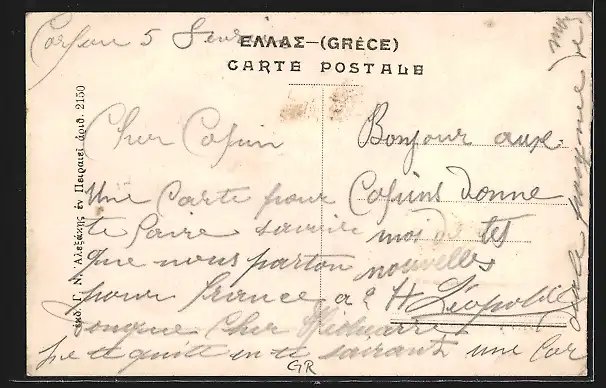 Corfou 5
ΕΛΛΑΣ—(GRÈCE)
CARTE POSTALE
ἐκδ. Γ. Ν. Ἀλεξάκης ἐν Πειραιεῖ ἀριθ. 2150
Cher Cousin
Une Carte pour
te faire savoir
que nous parton
pour france a 2 H
Cher
je te quitt en te une
Bonjour aux
Cousins donne
moi de tes
nouvelles
Léopold
GR